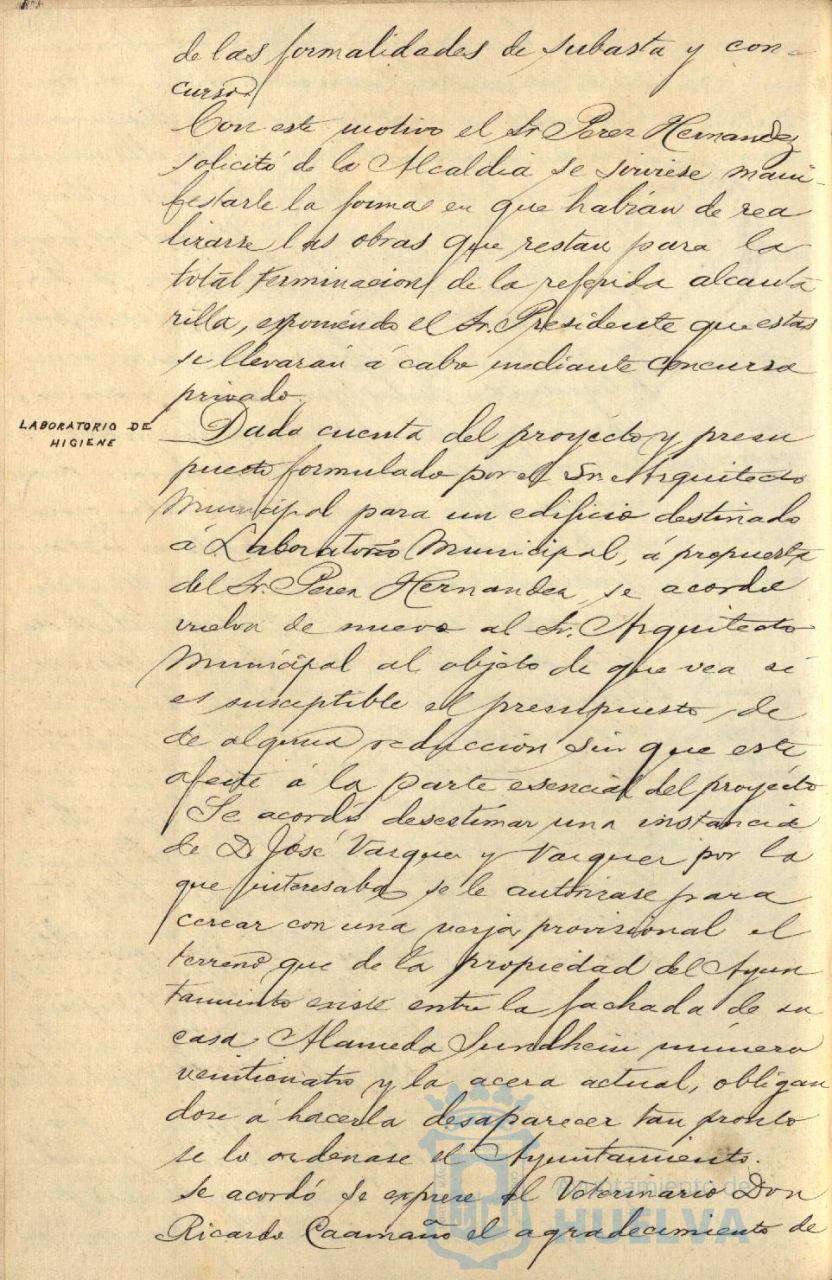 de las formalidades de subasta y con-
curso.
Con este motivo el Sr. Perez Hernandez
solicitó de la Alcaldia se sirviese mani-
festarle la forma en que habrian de rea
lizarse las obras que restan para la
total terminacion de la referida alcanta
rilla, exponiendo el Sr. Presidente que estas
se llevarán á cabo mediante concurso
privado.
LABORATORIO DE
HIGIENE
Dada cuenta del proyecto y presu
puesto formulado por el Sr. Arquitecto
Municipal para un edificio destinado
á Laboratorio Municipal, á propuesta
del Sr. Perez Hernandez, se acordó
vuelva de nuevo al Sr. Arquitecto
Municipal al objeto de que vea si
es susceptible el presupuesto, de
de alguna reducción sin que esta
afecte á la parte esencial del proyecto
Se acordó desestimar una instancia
de D. José Vazquez y Vazquez por la
que interesaba se le autorizase para
cercar con una verja provisional el
terreno que de la propiedad del Ayun
tamiento existe entre la fachada de su
casa Alameda Sundhein número
veinticuatro y la acera actual, obligan
dose á hacerla desaparecer tan pronto
se lo ordenase el Ayuntamiento.
se acordó se exprese al Veterinario Don
Ricardo Caamaño el agradecimiento de
Ayuntamiento de
HUELVA